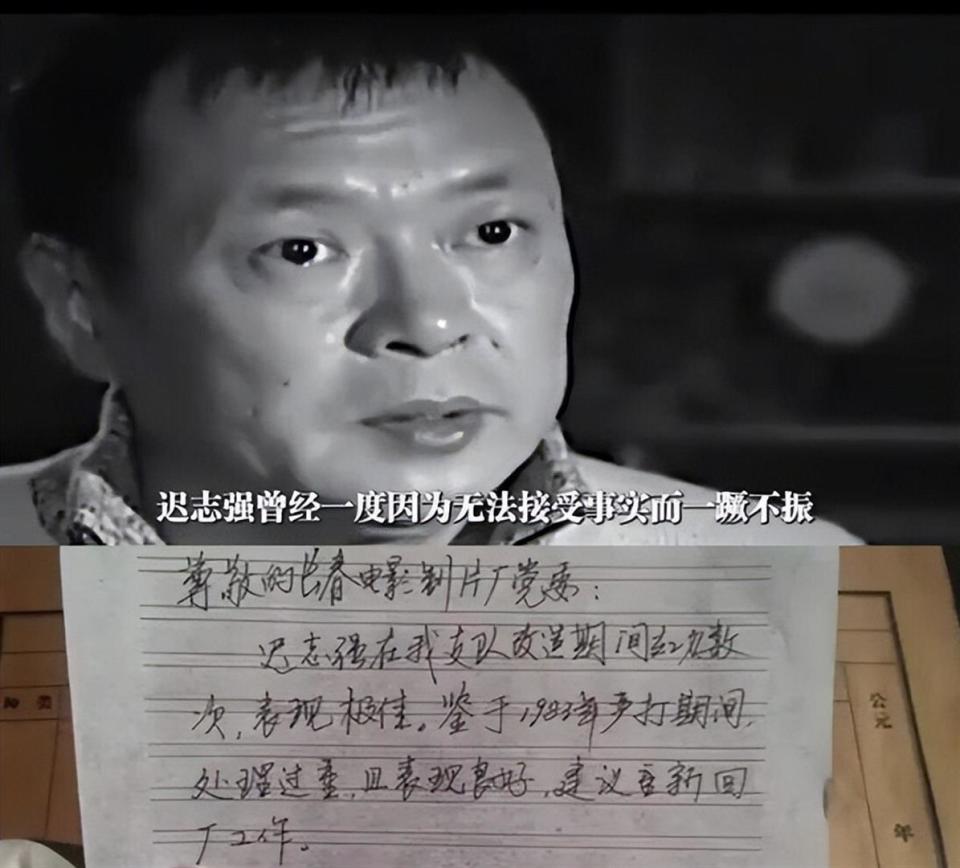 迟志强曾经一度因为无法接受事实而一蹶不振
尊敬的长春电影制片厂党委：
迟志强在我支队改造期间立功数
次，表现极佳。鉴于1983年严打期间，
处理过重，且表现良好，建议重新回
厂工作。
种类
公元
年